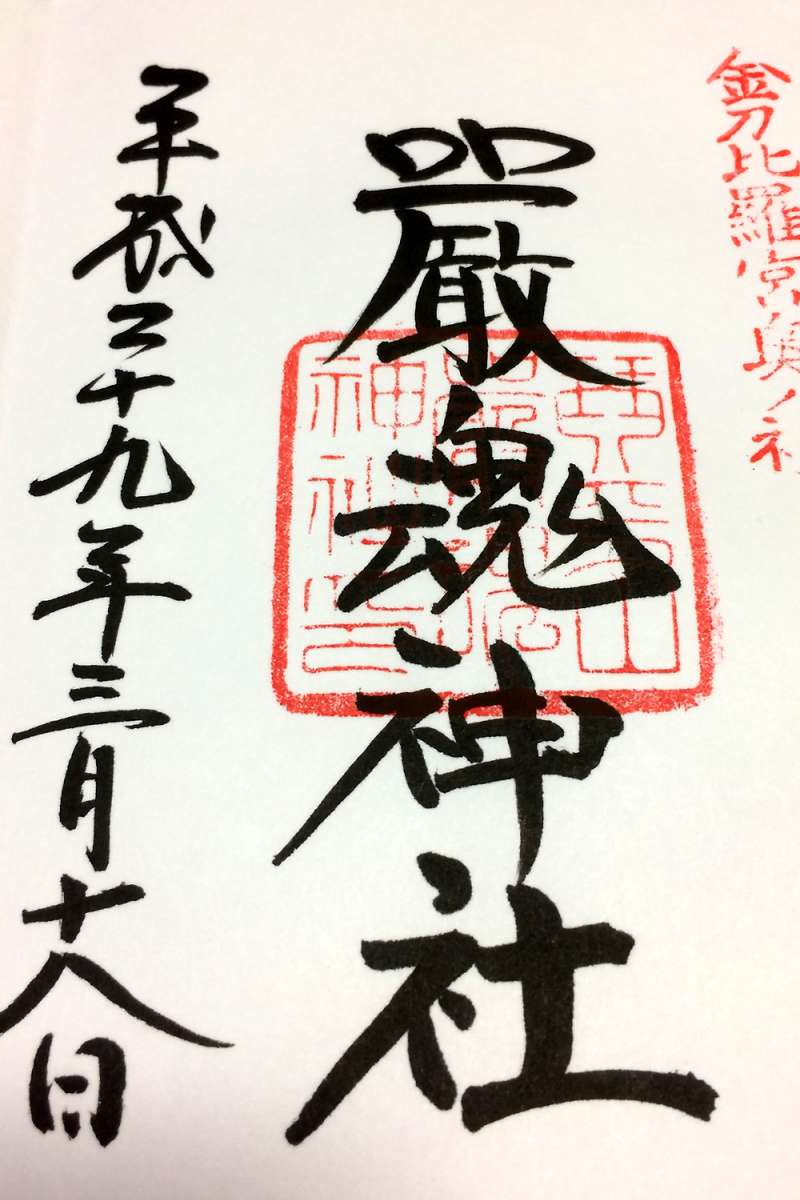 金刀比羅宮奥ノ社
嚴魂神社
琴平山
嚴魂
神社印
平成二十九年三月十八日